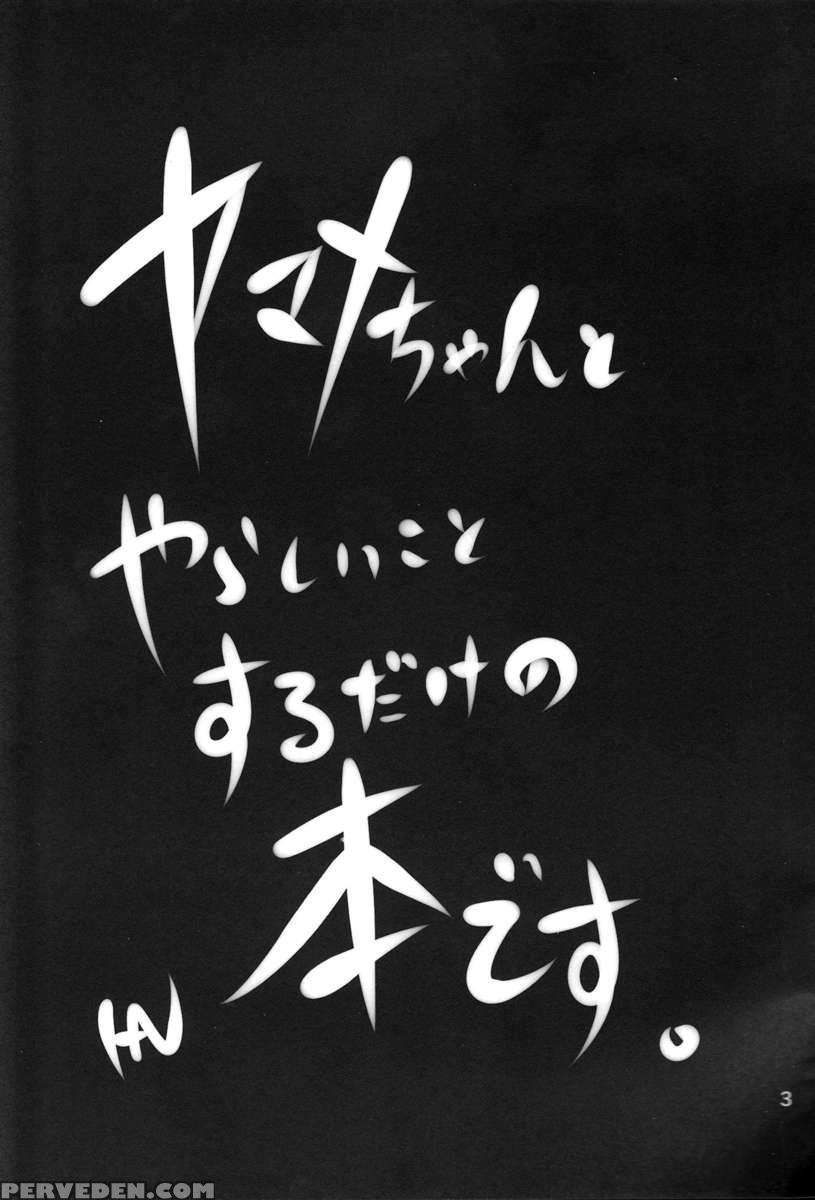 ヤマメちゃんと
やらしいこと
するだけの
本です。
HAN
3
PERVEDEN.COM